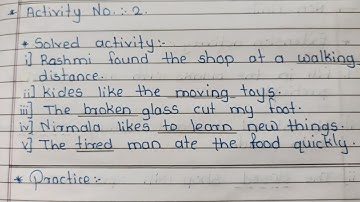 * Activity No. :- 2.
* Solved activity :-
i] Rashmi found the shop at a walking
distance.
ii] Kides like the moving toys.
iii] The broken glass cut my foot.
iv] Nirmala likes to learn new things.
v] The tired man ate the food quickly.
* Practice :-